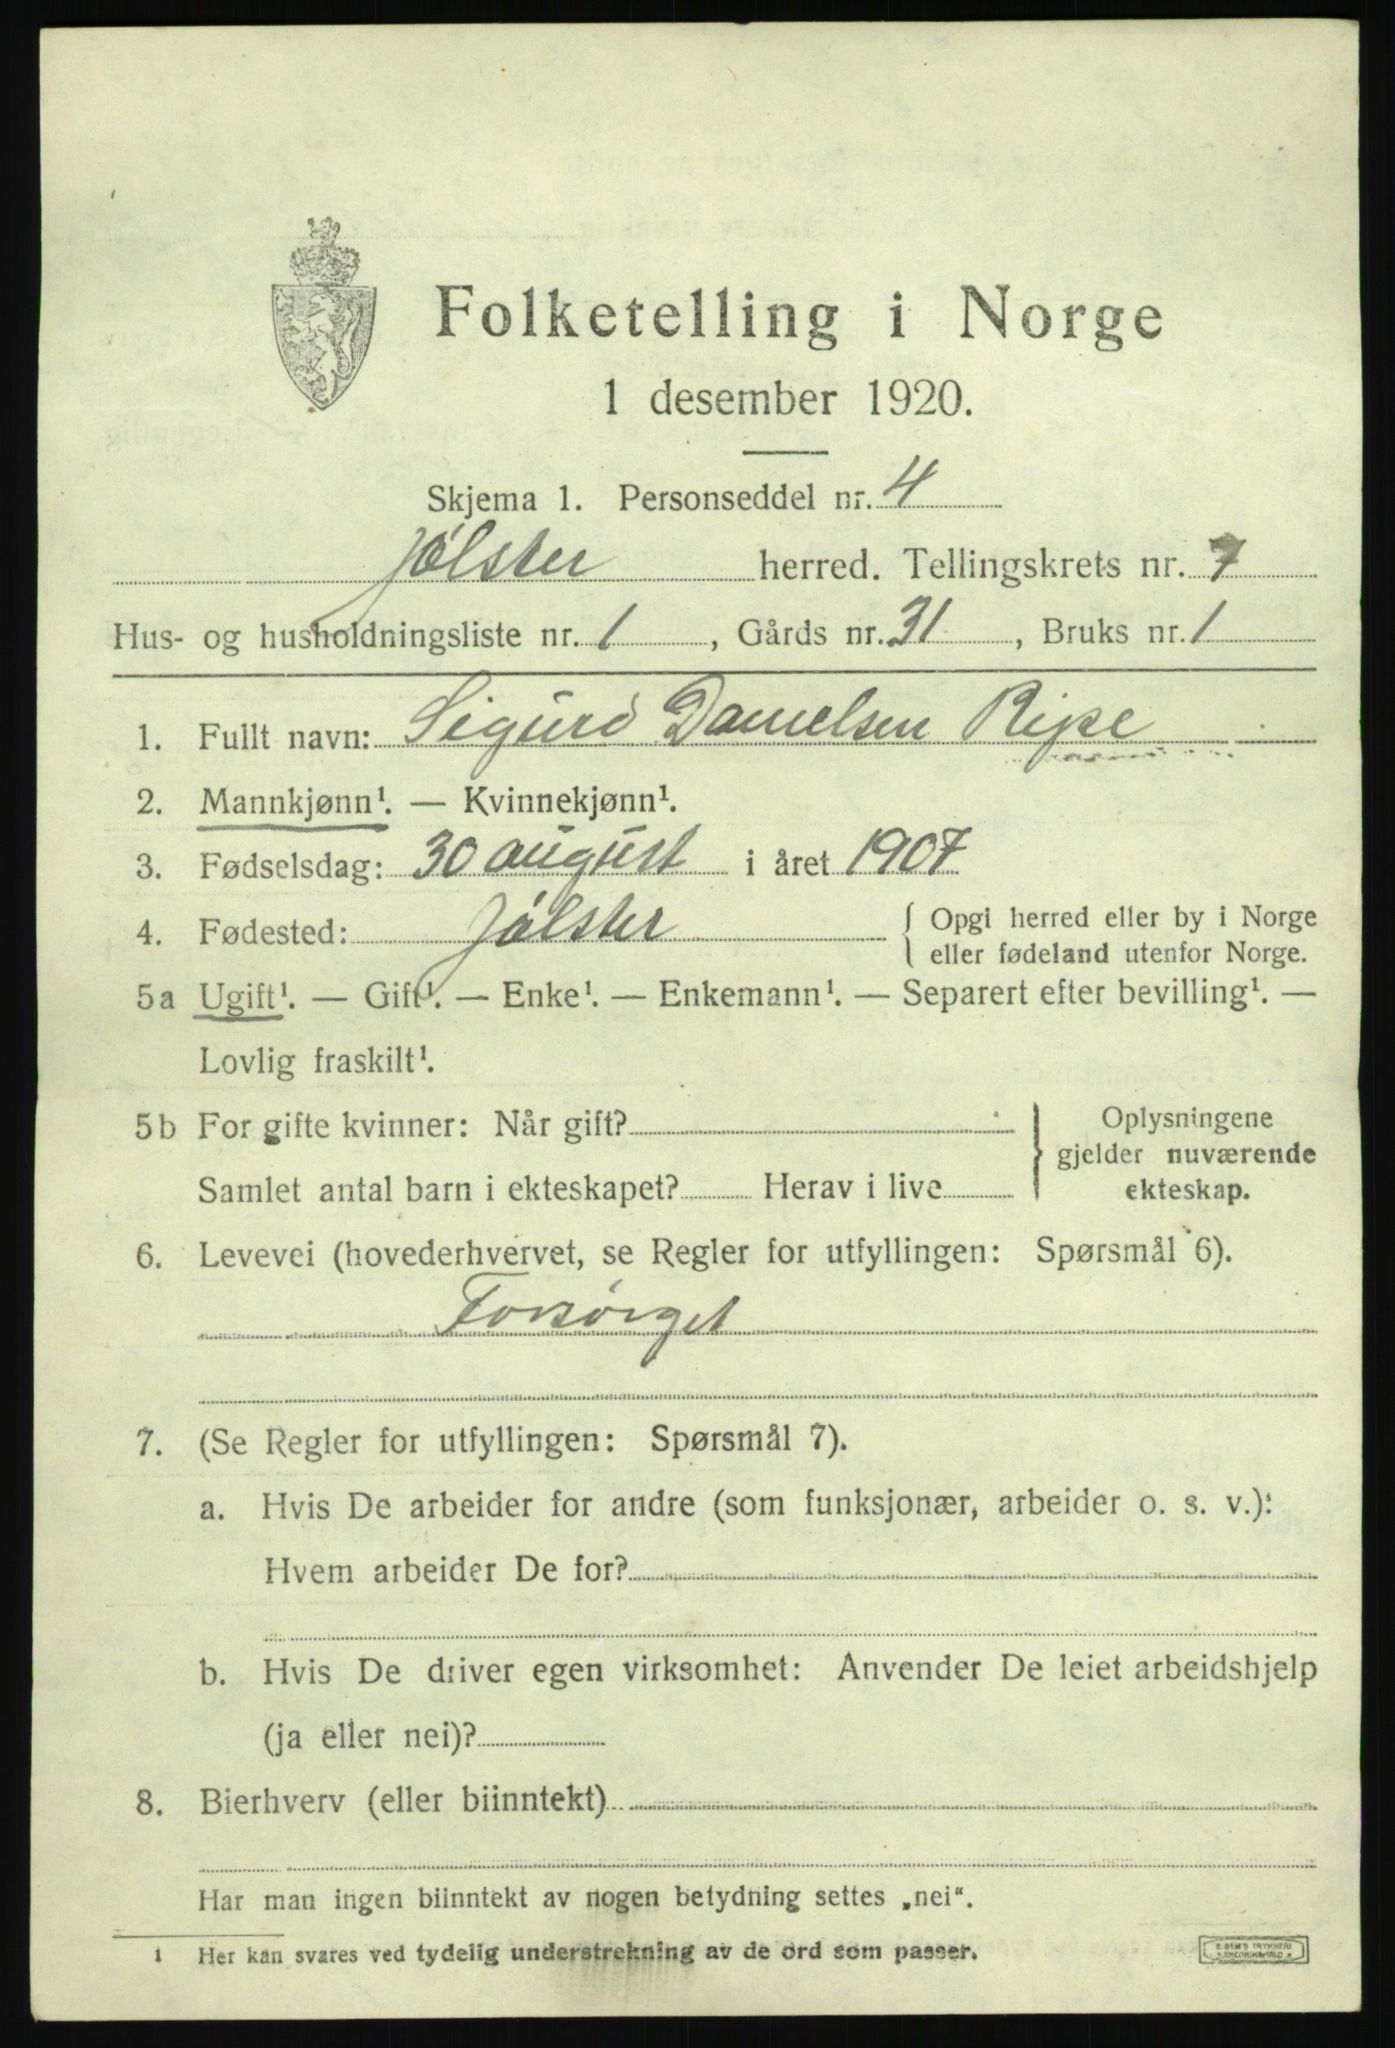 Folketelling i Norge
1 desember 1920.
Skjema 1. Personseddel nr. 4
Jølster herred. Tellingskrets nr. 7
Hus- og husholdningsliste nr. 1, Gårds nr. 31, Bruks nr. 1
1. Fullt navn: Sigurd Danielsen Ripe
2. Mannkjønn¹. — Kvinnekjønn¹.
3. Fødselsdag: 30 august i året 1907
4. Fødested: Jølster { Opgi herred eller by i Norge
eller fødeland utenfor Norge.
5a Ugift¹. — Gift¹. — Enke¹. — Enkemann¹. — Separert efter bevilling¹. —
Lovlig fraskilt¹.
5b For gifte kvinner: Når gift? } Oplysningene
gjelder nuværende
Samlet antal barn i ekteskapet? Herav i live ekteskap.
6. Levevei (hovederhvervet, se Regler for utfyllingen: Spørsmål 6).
Forsørget
7. (Se Regler for utfyllingen: Spørsmål 7).
a. Hvis De arbeider for andre (som funksjonær, arbeider o. s. v.):
Hvem arbeider De for?
b. Hvis De driver egen virksomhet: Anvender De leiet arbeidshjelp
(ja eller nei)?
8. Bierhverv (eller biinntekt)
Har man ingen biinntekt av nogen betydning settes „nei“.
1 Her kan svares ved tydelig understrekning av de ord som passer.